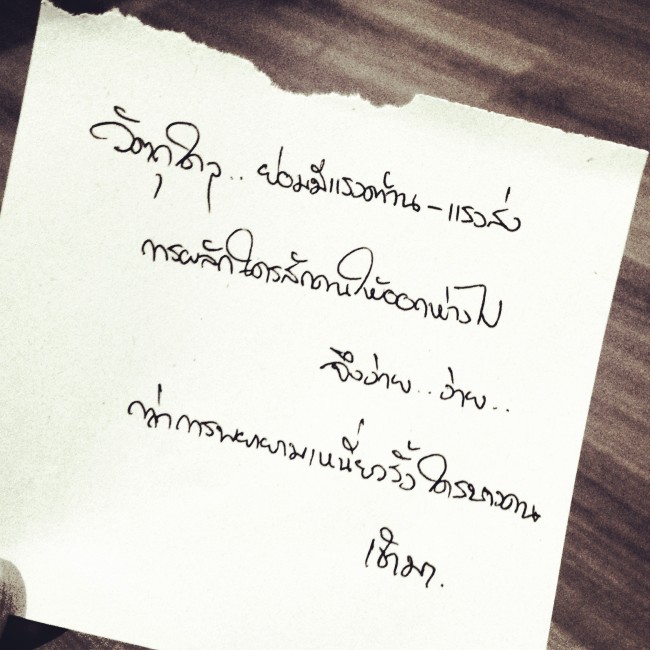 วัตถุใดๆ.. ย่อมมีแรงต้าน - แรงส่ง
การผลักใครสักคนให้ออกห่างไป
จึงง่าย.. ง่าย..
กว่าการพยายามเหนี่ยวรั้งใครบางคน
เข้ามา.